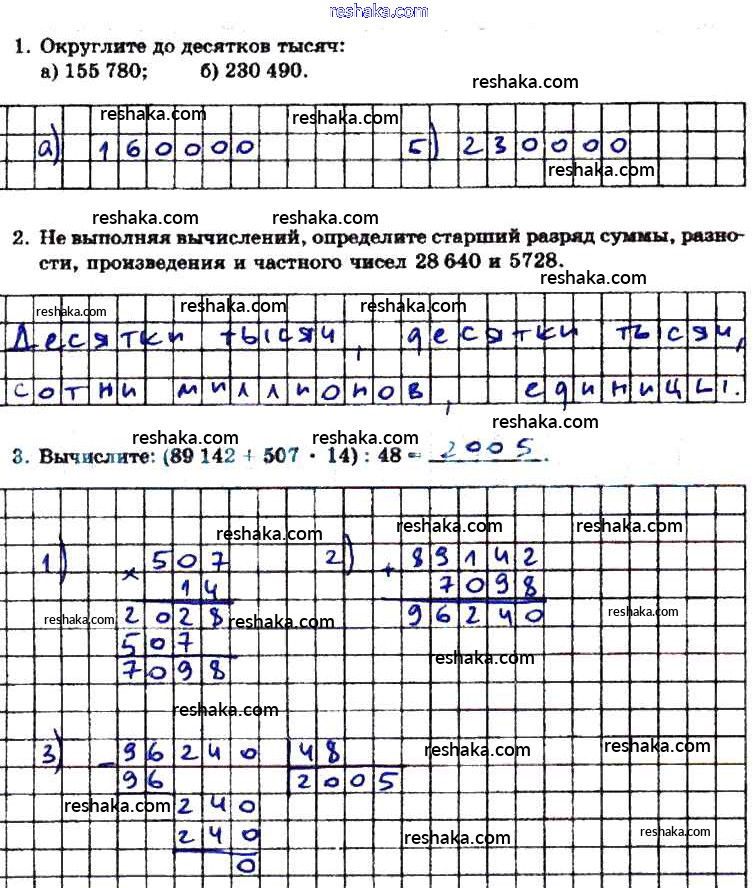 reshaka.com
1. Округлите до десятков тысяч:
а) 155 780; б) 230 490.
reshaka.com
reshaka.com reshaka.com
а) 160000 б) 230000
reshaka.com
reshaka.com reshaka.com
2. Не выполняя вычислений, определите старший разряд суммы, разно-
сти, произведения и частного чисел 28 640 и 5728.
reshaka.com
reshaka.com reshaka.com reshaka.com
Десятки тысяч, десятки тысяч,
сотни миллионов, единицы.
reshaka.com
reshaka.com reshaka.com
3. Вычислите: (89 142 + 507 · 14) : 48 = 2005.
reshaka.com reshaka.com reshaka.com
1) × 507 2) + 89142
14 7098
reshaka.com reshaka.com reshaka.com
2028 96240
507
7098
reshaka.com
reshaka.com
3) - 96240 48
reshaka.com reshaka.com
96 2005
reshaka.com
240
240
reshaka.com reshaka.com
0